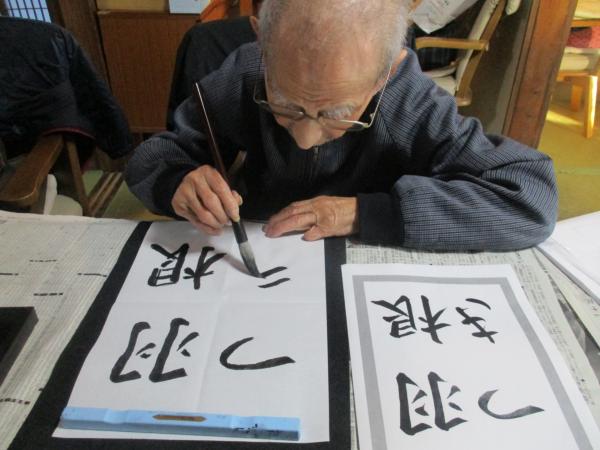 羽根
つ
羽根
つき